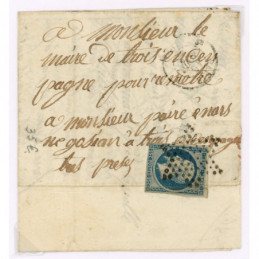 a monsieur le
maire de trois en cem
pagne pour remetre
a monsieur paire enors
negosian a trois
tres presés